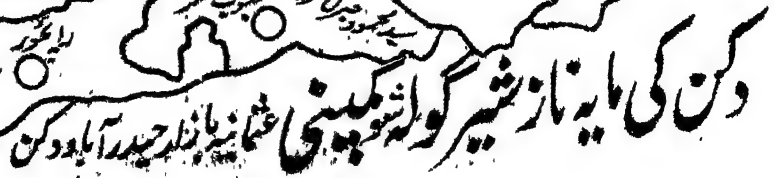 دکن کی مایہ ناز شیر گولہ شو کمپنی عثمانیہ بازار حیدرآباد دکن